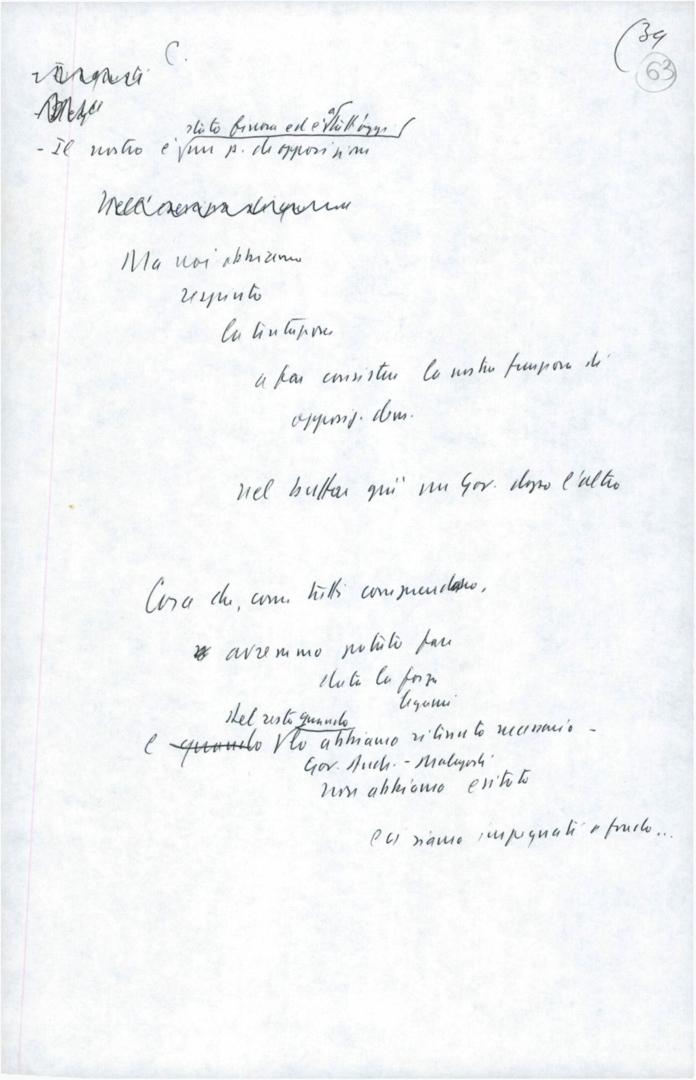 C.
(39
63
stato finora ed è a tutt'oggi
- Il nostro è un p. di opposizione
Ma noi abbiamo
respinto
la tentazione
a far consistere la nostra funzione di
opposiz. dem.
nel buttar giù un Gov. dopo l'altro
Cosa che, come tutti comprendono,
avremmo potuto fare
data la forza
legami
del resto quando
e quando lo abbiamo ritenuto necessario -
Gov. Andr. - Malagodi
non abbiamo esitato
e ci siamo impegnati a fondo...